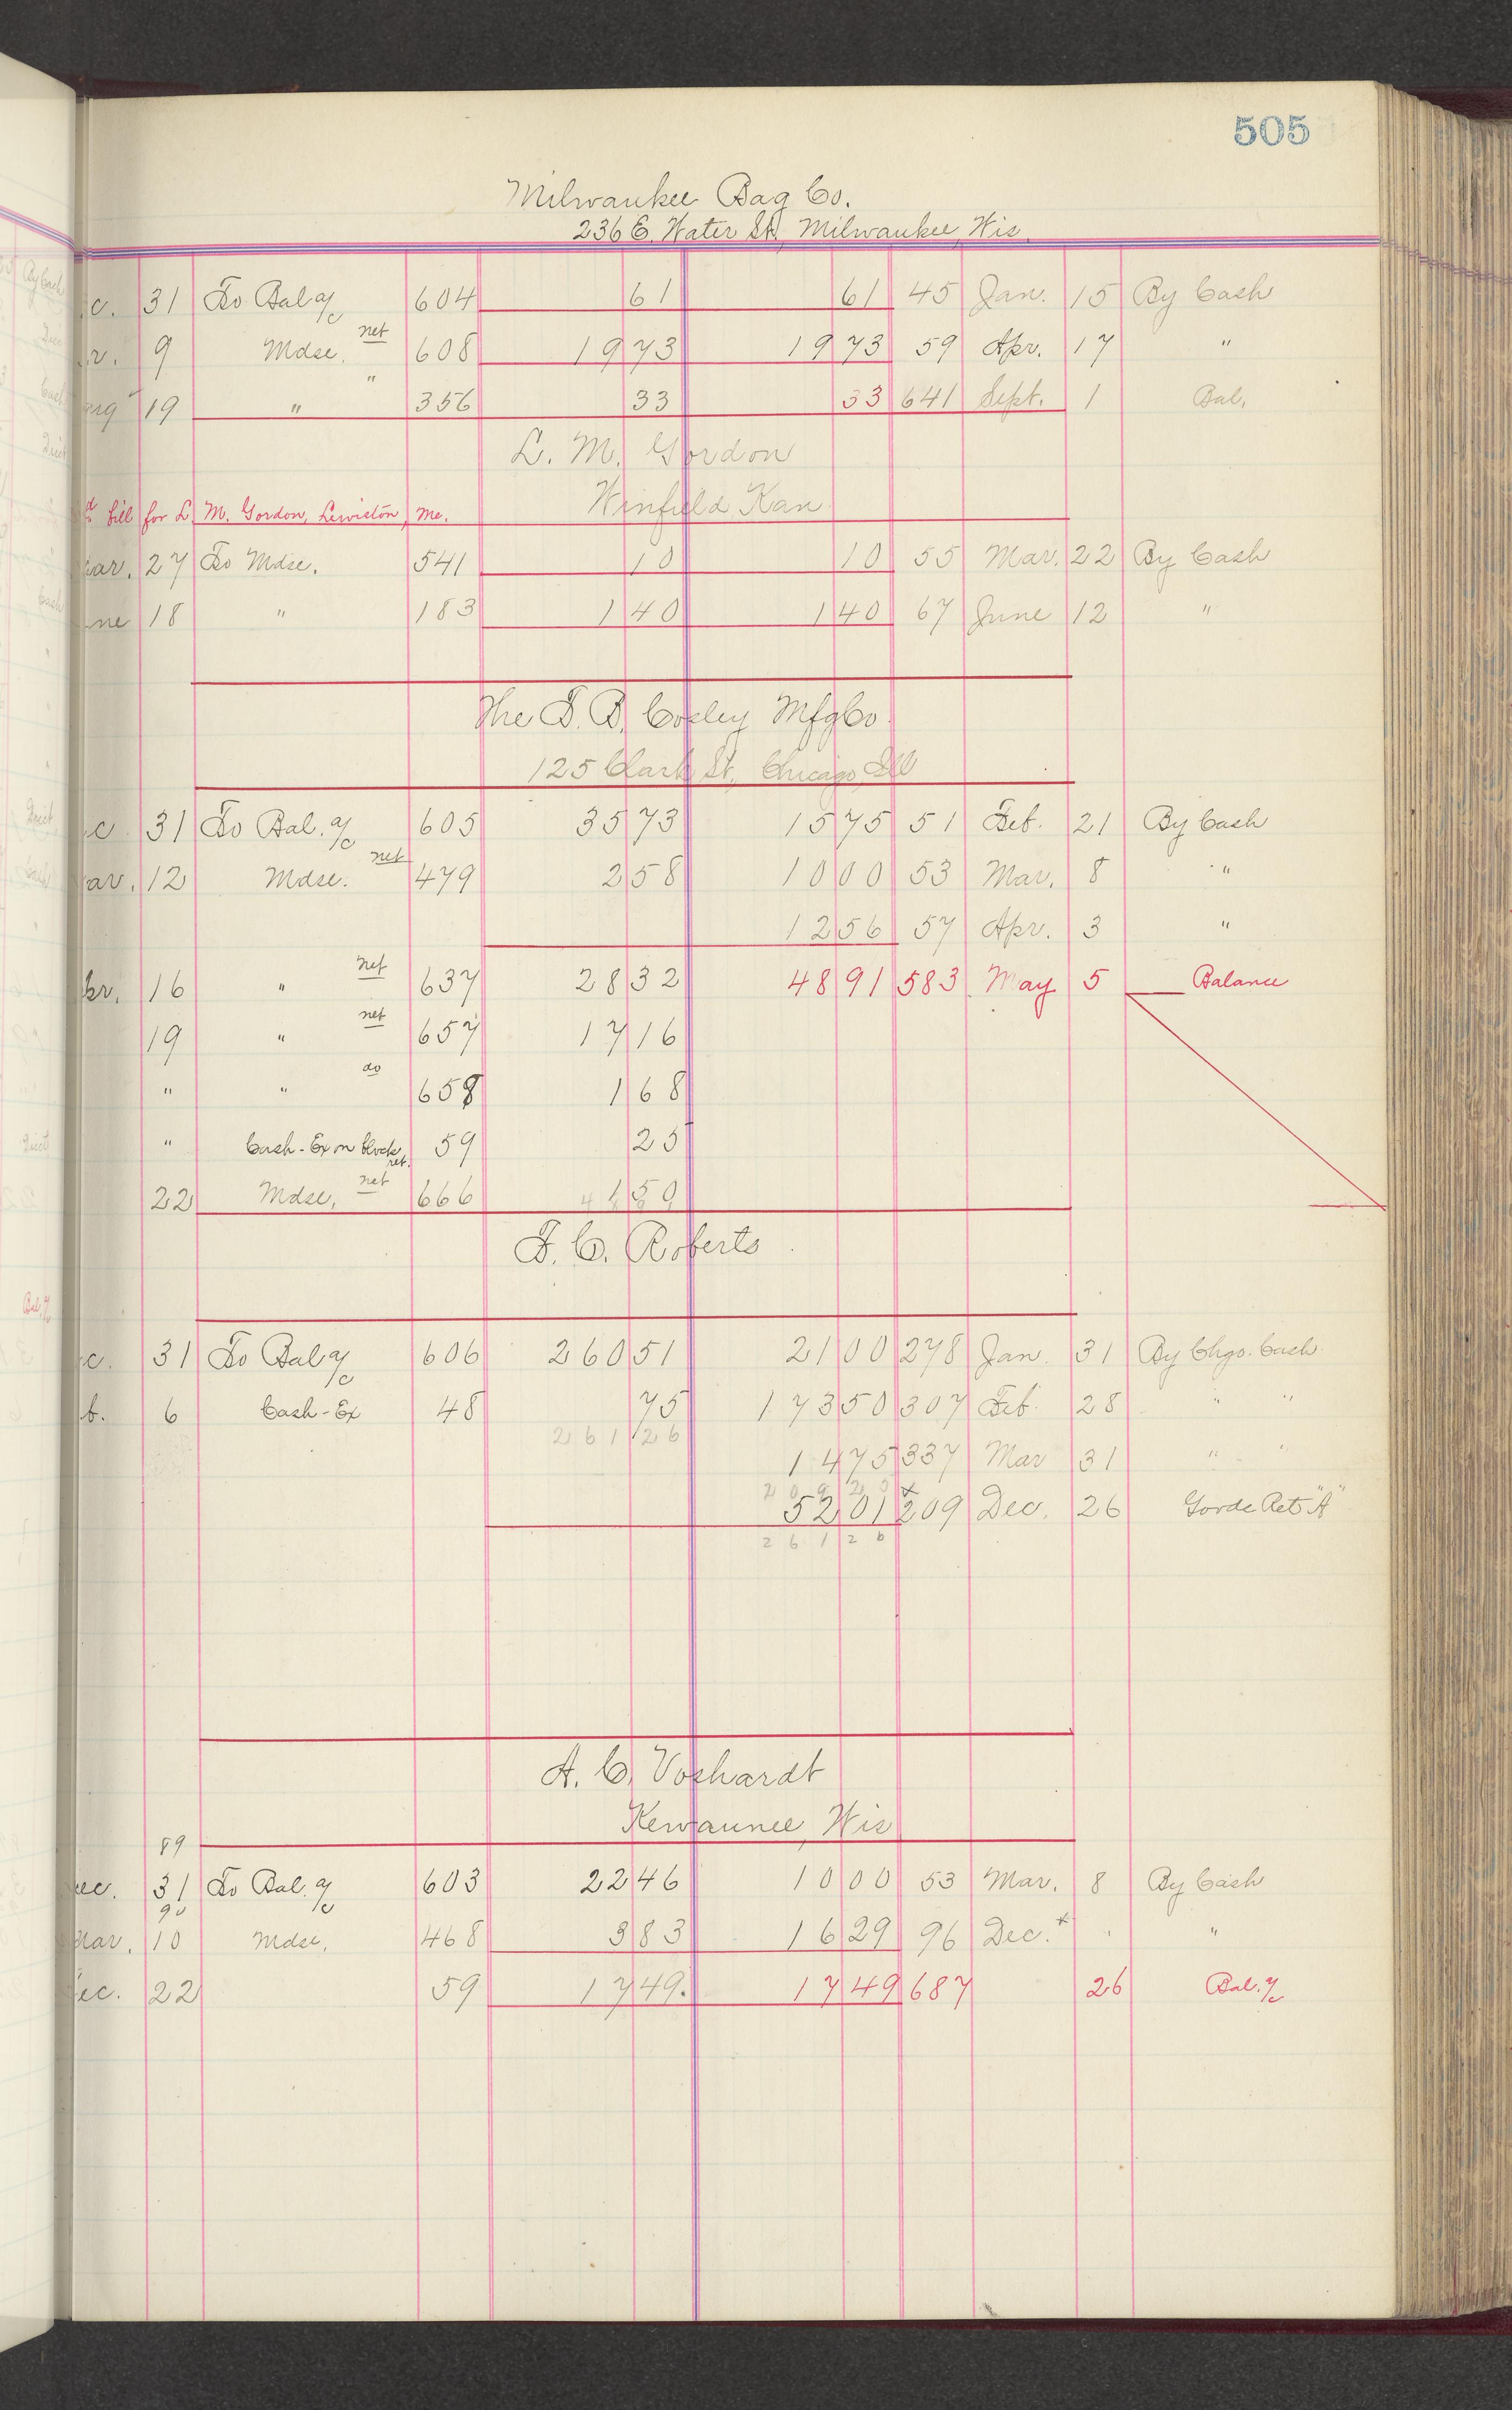 505
Milwaukee Bag Co.
236 E. Water St, Milwaukee, Wis
c. 31 To Bal a/c 604 61 61 45 Jan. 15 By Cash
r. 9 Mdse. net 608 19 73 19 73 59 Apr. 17 "
ug 19 " " 356 33 33 641 Sept. 1 Bal.
L. M. Gordon
Winfield, Kan
bill for L. M. Gordon, Lewiston, Me.
ar. 27 To Mdse. 541 10 10 55 Mar. 22 By Cash
ne 18 " 183 1 40 1 40 67 June 12 "
The
Mfg Co
125 Clark St, Chicago, Ill
c. 31 To Bal. a/c 605 35 73 15 75 51 Feb. 21 By Cash
ar. 12 Mdse. net 479 2 58 10 00 53 Mar. 8 "
12 56 57 Apr. 3 "
pr. 16 " net 637 28 32 48 91 583 May 5 Balance
19 " net 657 17 16
" " do 658 1 68
" Cash - Ex on block ret. 59 25
22 Mdse, net 666
F. C. Roberts
c. 31 To Bal a/c 606 260 51 21 00 278 Jan. 31 By Chgo. Cash
b. 6 Cash - Ex 48 75 173 50 307 Feb. 28 " "
261 26
14 75 337 Mar 31 " "
209 20
52 01 209 Dec. 26 Gorde Ret "A"
261 26
A. C. Voshardt
Kewaunee, Wis
89
ec. 31 To Bal. a/c 603 22 46 10 00 53 Mar. 8 By Cash
90
Mar. 10 Mdse. 468 3 83 16 29 96 Dec. "
ec. 22 59 17 49. 17 49 687 26 Bal. a/c